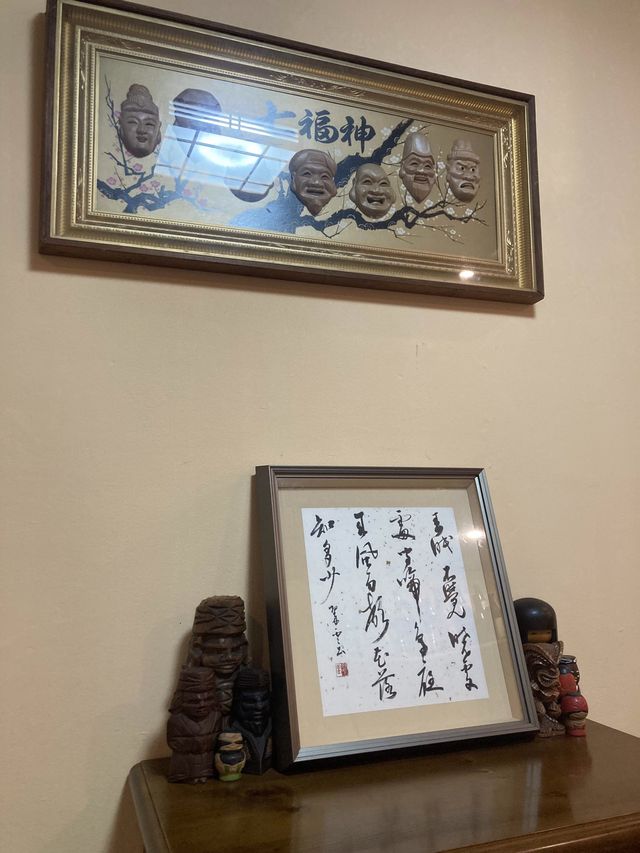 七福神
春眠不覺曉處
處聞啼鳥夜
来風雨聲花落
知多少